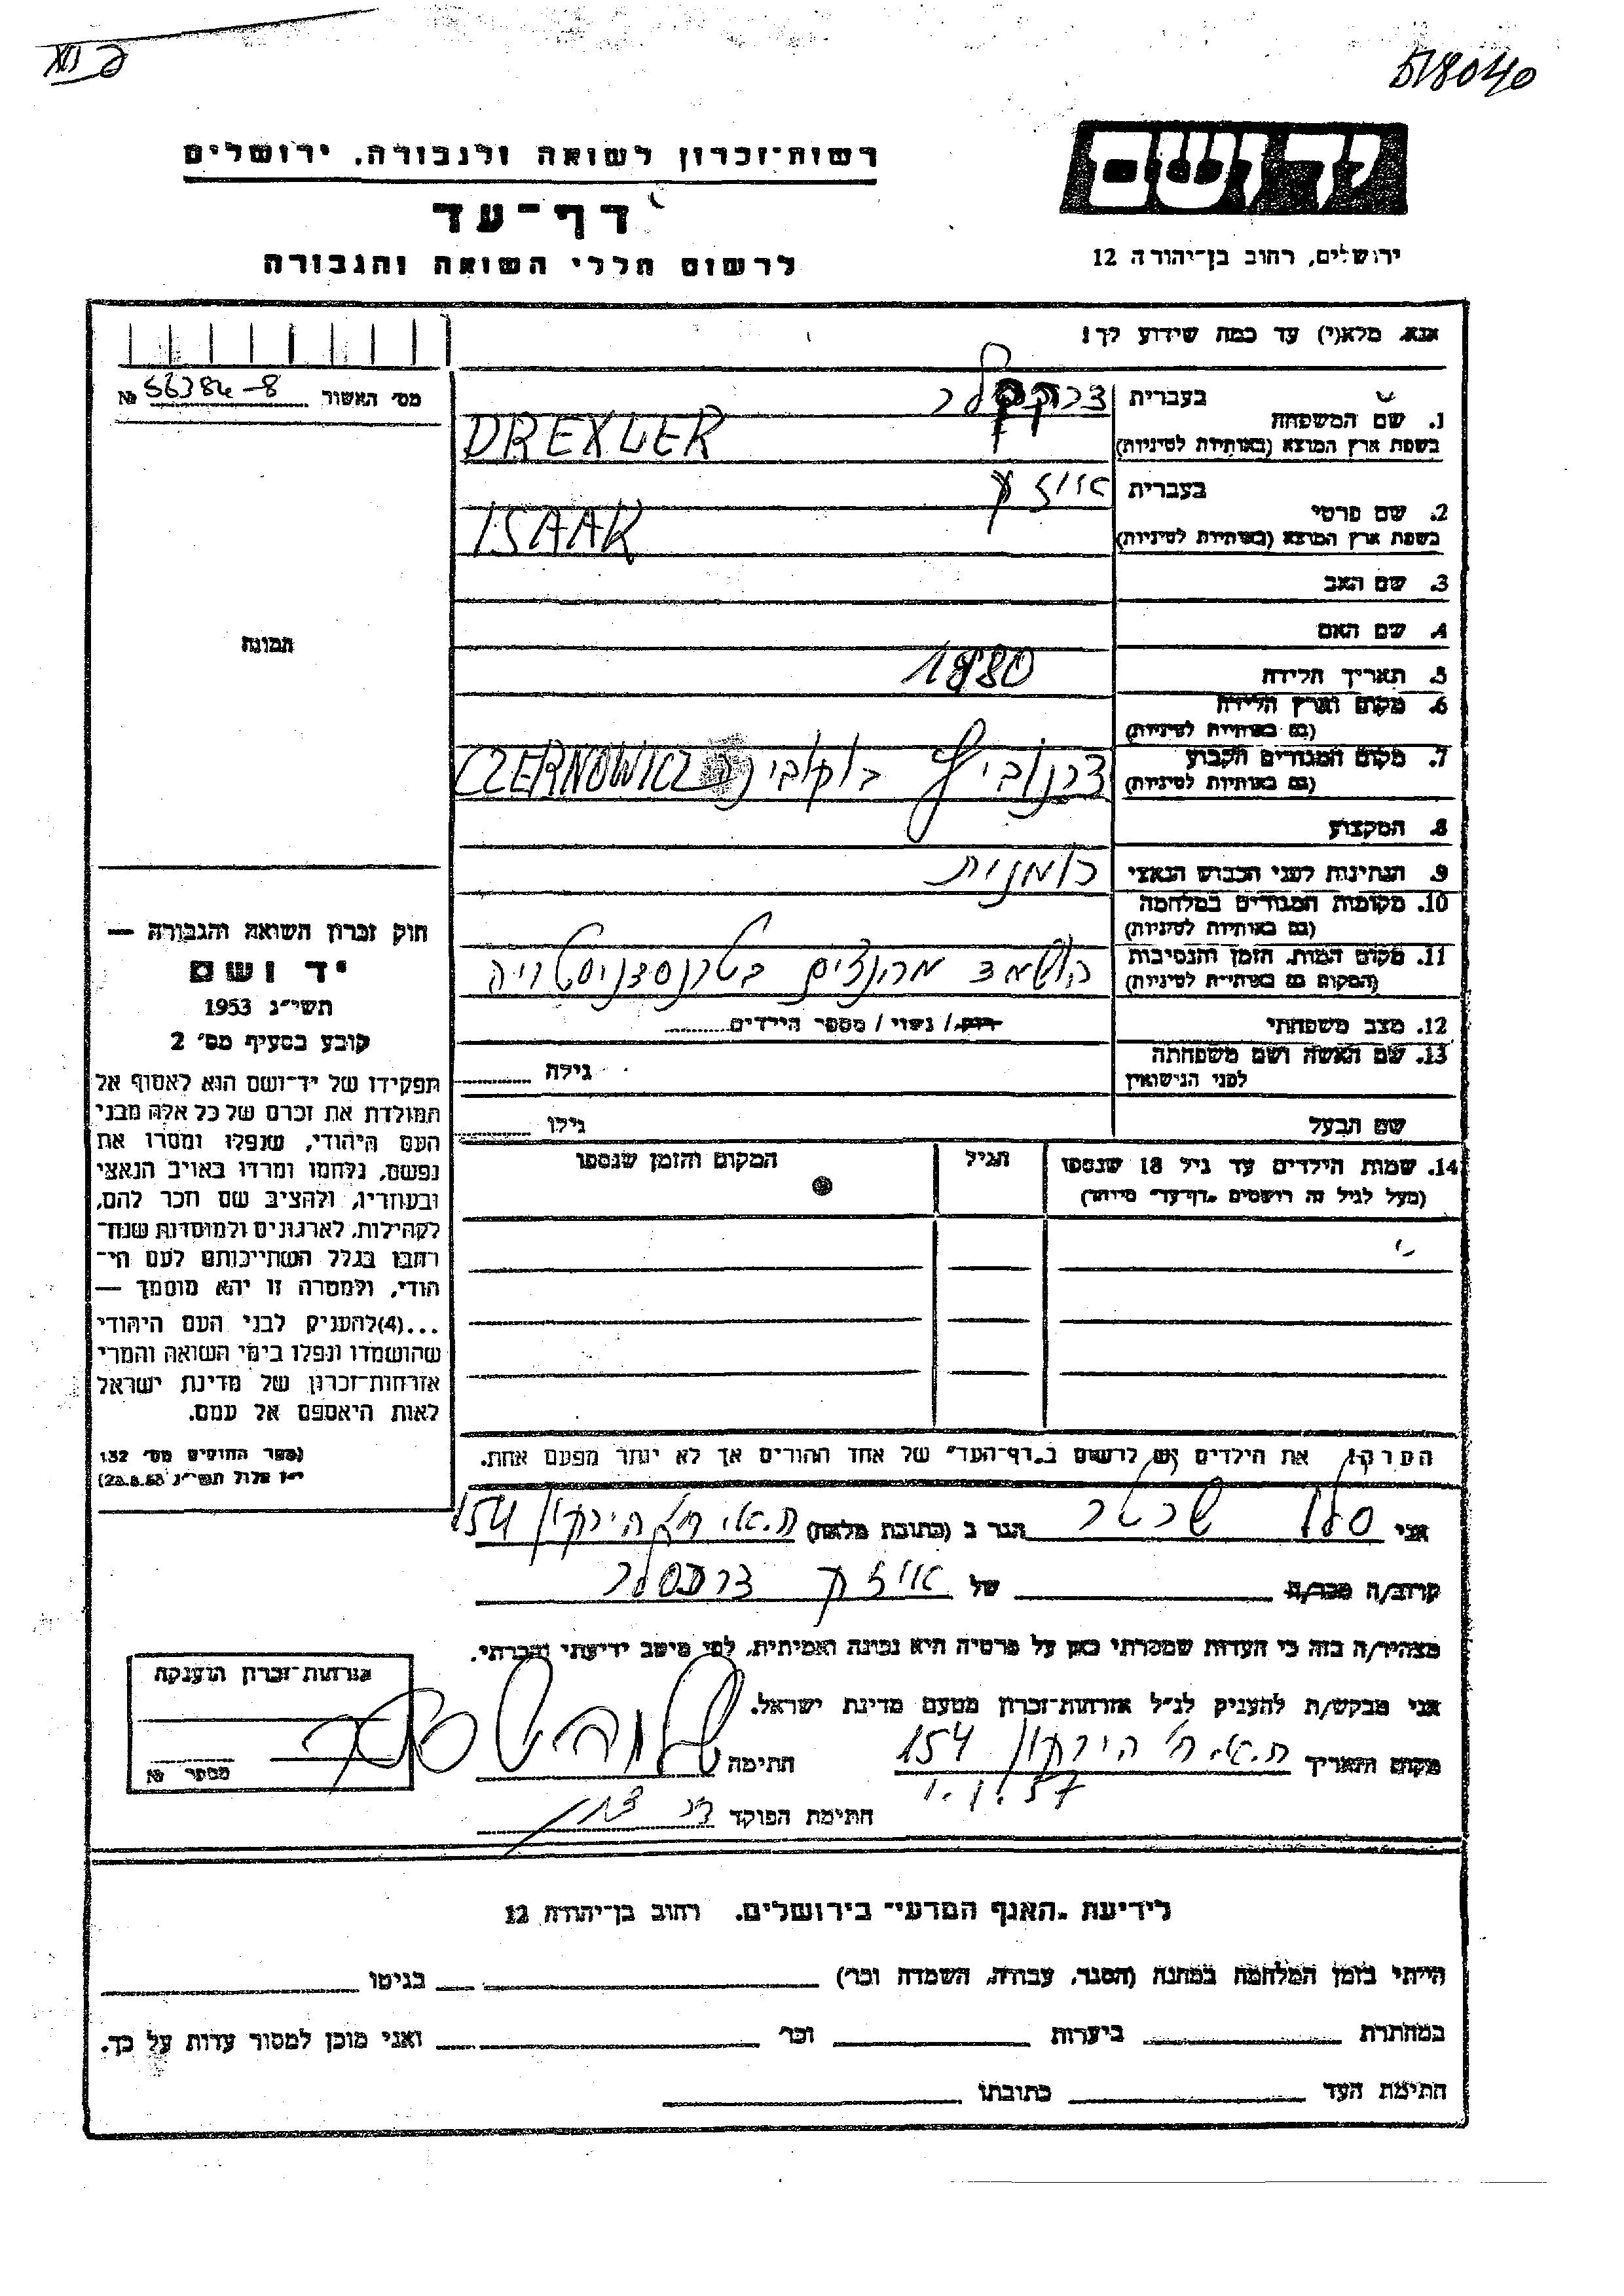 518040
יד ושם
ירושלים, רחוב בן־יהודה 12
רשות־זכרון לשואה ולגבורה, ירושלים
דף־עד
לרשום חללי השואה והגבורה
אנא, מלא(י) עד כמה שידוע לך!
מס׳ האשור № 56384-8
בעברית
1. שם המשפחה
בשפת ארץ המוצא (באותיות לטיניות) DREXLER
בעברית אייזק
2. שם פרטי
בשפת ארץ המוצא (באותיות לטיניות) ISAAK
3. שם האב
4. שם האם
תמונה
5. תאריך הלידה 1880
6. מקום וארץ הלידה
(גם באותיות לטיניות)
7. מקום המגורים הקבוע צרנוביץ בוקובינה CZERNOWICZ
(גם באותיות לטיניות)
8. המקצוע
9. הנתינות לפני הכבוש הנאצי רומנית
10. מקומות המגורים במלחמה
(גם באותיות לטיניות)
11. מקום המות, הזמן והנסיבות הושמד מהנצים בטרנסצניסטריה
(המקום גם באותיות לטיניות)
12. מצב משפחתי רווק / נשוי / מספר הילדים
13. שם האשה ושם משפחתה
לפני הנישואין גילה
שם הבעל גילו
14. שמות הילדים עד גיל 18 שנספו הגיל המקום והזמן שנספו
(מעל לגיל זה רושמים "דף־עד" מיוחד)
חוק זכרון השואה והגבורה —
יד ושם
תשי״ג 1953
קובע בסעיף מס׳ 2
תפקידו של יד־ושם הוא לאסוף אל
המולדת את זכרם של כל אלה מבני
העם היהודי, שנפלו ומסרו את
נפשם, נלחמו ומרדו באויב הנאצי
ובעוזריו, ולהציב שם וזכר להם,
לקהילות, לארגונים ולמוסדות שנח־
רבו בגלל השתייכותם לעם הי־
הודי, ולמטרה זו יהא מוסמך —
...(4)להעניק לבני העם היהודי
שהושמדו ונפלו בימי השואה והמרי
אזרחות־זכרון של מדינת ישראל
לאות היאספם אל עמם.
(ספר החוקים מס׳ 132
י״ז אלול תשי״ג 28.8.53)
הערה: את הילדים יש לרשום ב"דף־העד" של אחד ההורים אך לא יותר מפעם אחת.
אני הגר ב (כתובת מלאה) ת.א. רח׳ הירקון 154
קרוב/ה מכר/ה של אייזק
מצהיר/ה בזה כי העדות שמסרתי כאן על פרטיה היא נכונה ואמיתית, לפי מיטב ידיעתי והכרתי.
אני מבקש/ת להעניק לנ״ל אזרחות־זכרון מטעם מדינת ישראל.
מקום ותאריך ת.א. רח׳ הירקון 154 חתימה
1.1.57
חתימת הפוקד
אזרחות־זכרון הוענקה
מספר №
לידיעת "האגף המדעי" בירושלים, רחוב בן־יהודה 12
הייתי בזמן המלחמה במחנה (הסגר, עבודה, השמדה וכו׳) בגיטו
במחתרת ביערות וכו׳ ואני מוכן למסור עדות על כך.
חתימת העד כתובתו